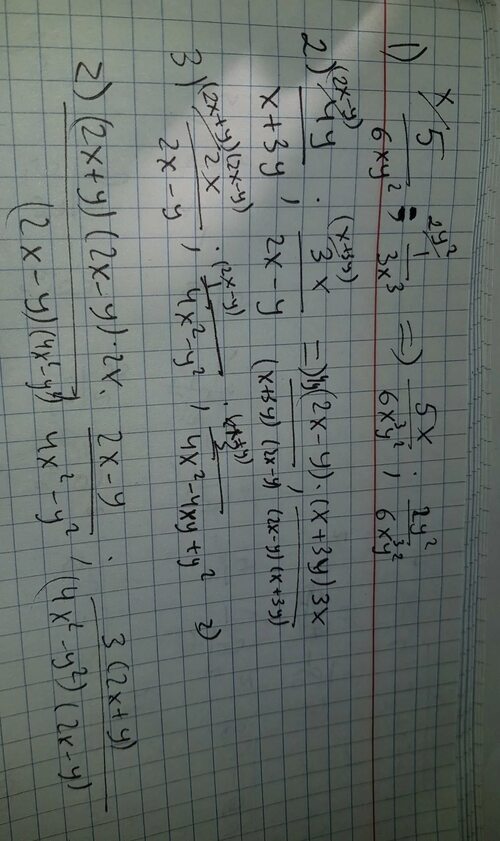 1) x/ 5/6xy² ; 2y²/ 1/3x³ => 5x/6x³y² ; 2y²/6xy³²
2) (2x-y)/ 4y/x+3y ; (x+3y) 3x/2x-y => 4y(2x-y)/(x+3y)(2x-y) ; (x+3y)3x/(2x-y)(x+3y)
3) (2x+y)(2x-y)/ 2x/2x-y ; (2x-y) 1/4x²-y² ; (2x+y) 3/4x²-4xy+y² 2)
2) (2x+y)(2x-y)·2x/(2x-y)(4x²-y²) ; 2x-y/4x²-y² ; 3(2x+y)/(4x²-y²)(2x-y)